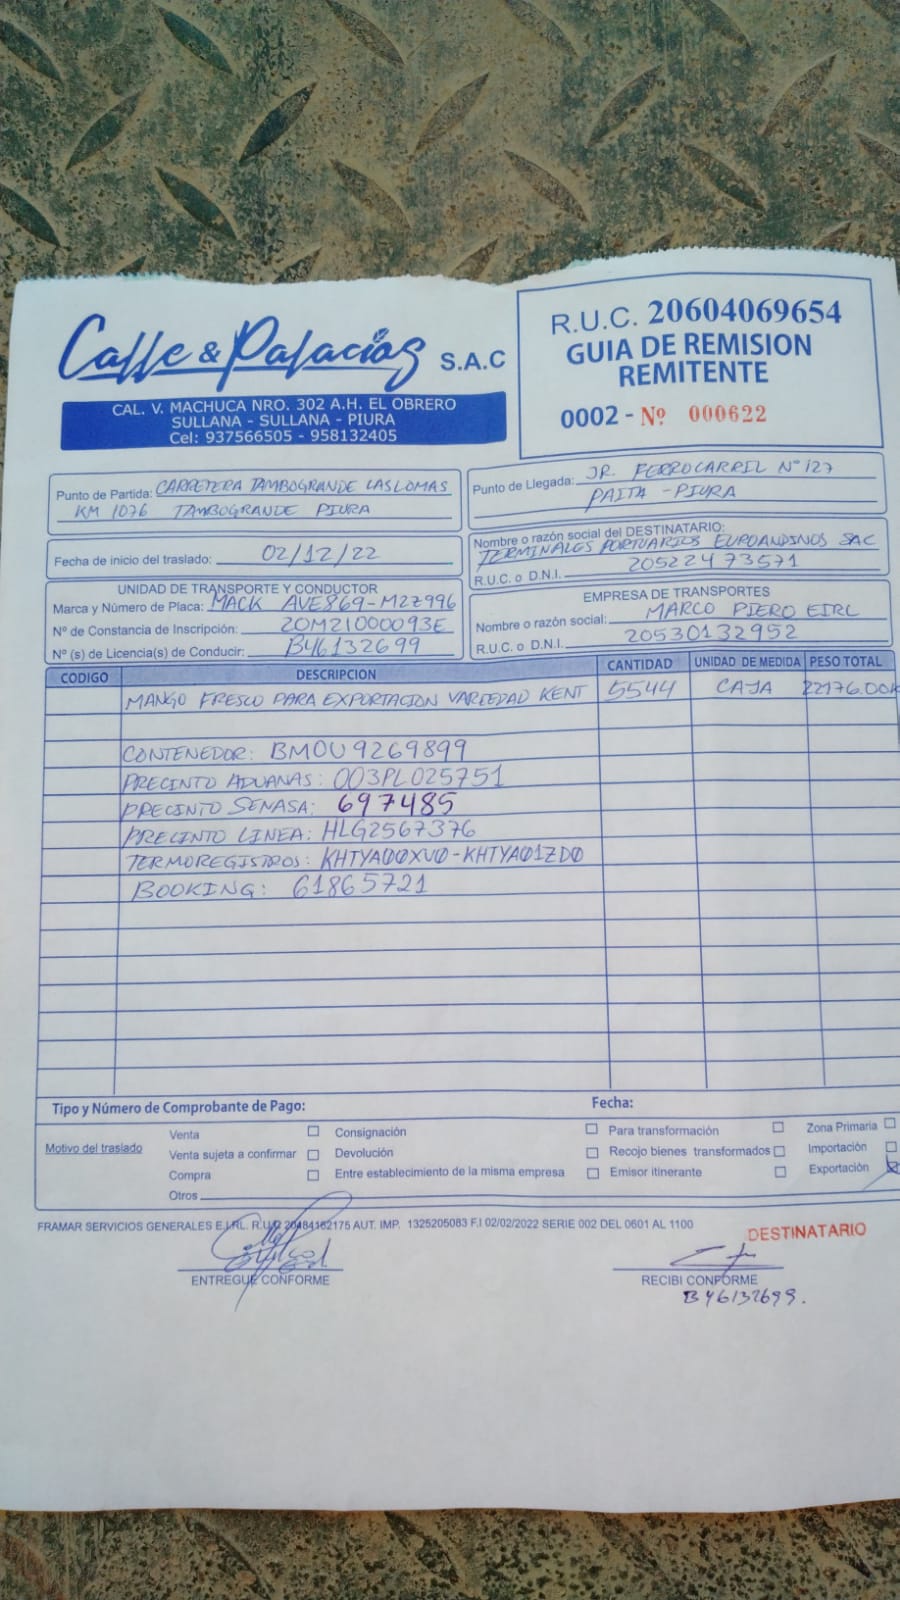 Calle & Palacios S.A.C
CAL. V. MACHUCA NRO. 302 A.H. EL OBRERO
SULLANA - SULLANA - PIURA
Cel: 937566505 - 958132405
R.U.C. 20604069654
GUIA DE REMISION
REMITENTE
0002 - Nº 000622
Punto de Partida: CARRETERA TAMBOGRANDE LAS LOMAS
KM 1076 TAMBOGRANDE PIURA
Punto de Llegada: JR. FERROCARRIL Nº 127
PAITA - PIURA
Fecha de inicio del traslado: 02/12/22
Nombre o razón social del DESTINATARIO:
TERMINALES PORTUARIOS EUROANDINOS SAC
R.U.C. o D.N.I. 20522473571
UNIDAD DE TRANSPORTE Y CONDUCTOR
Marca y Número de Placa: MACK AVE869-M2Z996
Nº de Constancia de Inscripción: 20M21000093E
Nº (s) de Licencia(s) de Conducir: B46132699
EMPRESA DE TRANSPORTES
Nombre o razón social: MARCO PIERO EIRL
R.U.C. o D.N.I. 20530132952
CODIGO DESCRIPCION CANTIDAD UNIDAD DE MEDIDA PESO TOTAL
MANGO FRESCO PARA EXPORTACION VARIEDAD KENT 5544 CAJA 22176.00K
CONTENEDOR: BMOU9269899
PRECINTO ADUANAS: 003PL025751
PRECINTO SENASA: 697485
PRECINTO LINEA: HLG2567376
TERMOREGISTROS: KHTYA00XV0-KHTYA01ZD0
BOOKING: 61865721
Tipo y Número de Comprobante de Pago: Fecha:
Motivo del traslado
Venta
Venta sujeta a confirmar
Compra
Otros
Consignación
Devolución
Entre establecimiento de la misma empresa
Para transformación
Recojo bienes transformados
Emisor itinerante
Zona Primaria
Importación
Exportación
FRAMAR SERVICIOS GENERALES E.I.RL. R.U.C 20484162175 AUT. IMP. 1325205083 F.I 02/02/2022 SERIE 002 DEL 0601 AL 1100
DESTINATARIO
ENTREGUE CONFORME
RECIBI CONFORME
B46132699.